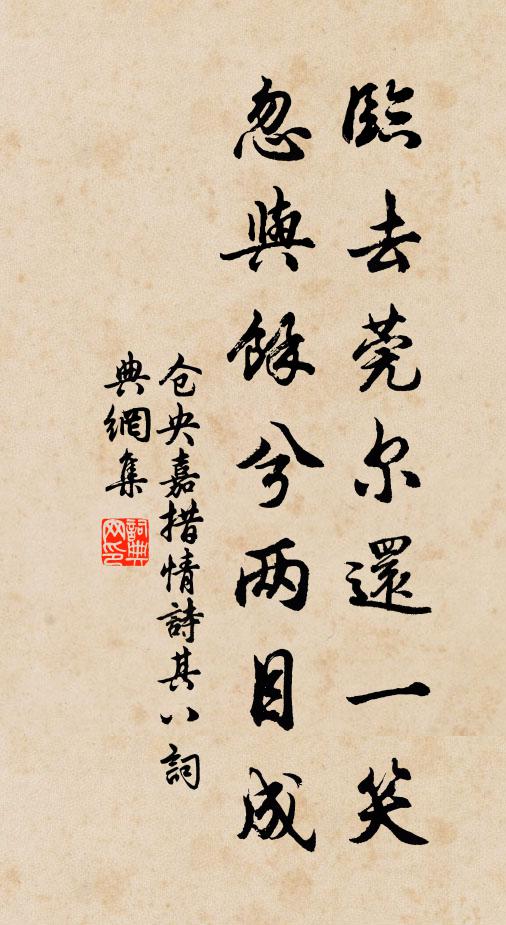 臨去莞尔還一笑
忽與餘兮兩目成
仓央嘉措情詩其八詞
典網集
詞典
网印